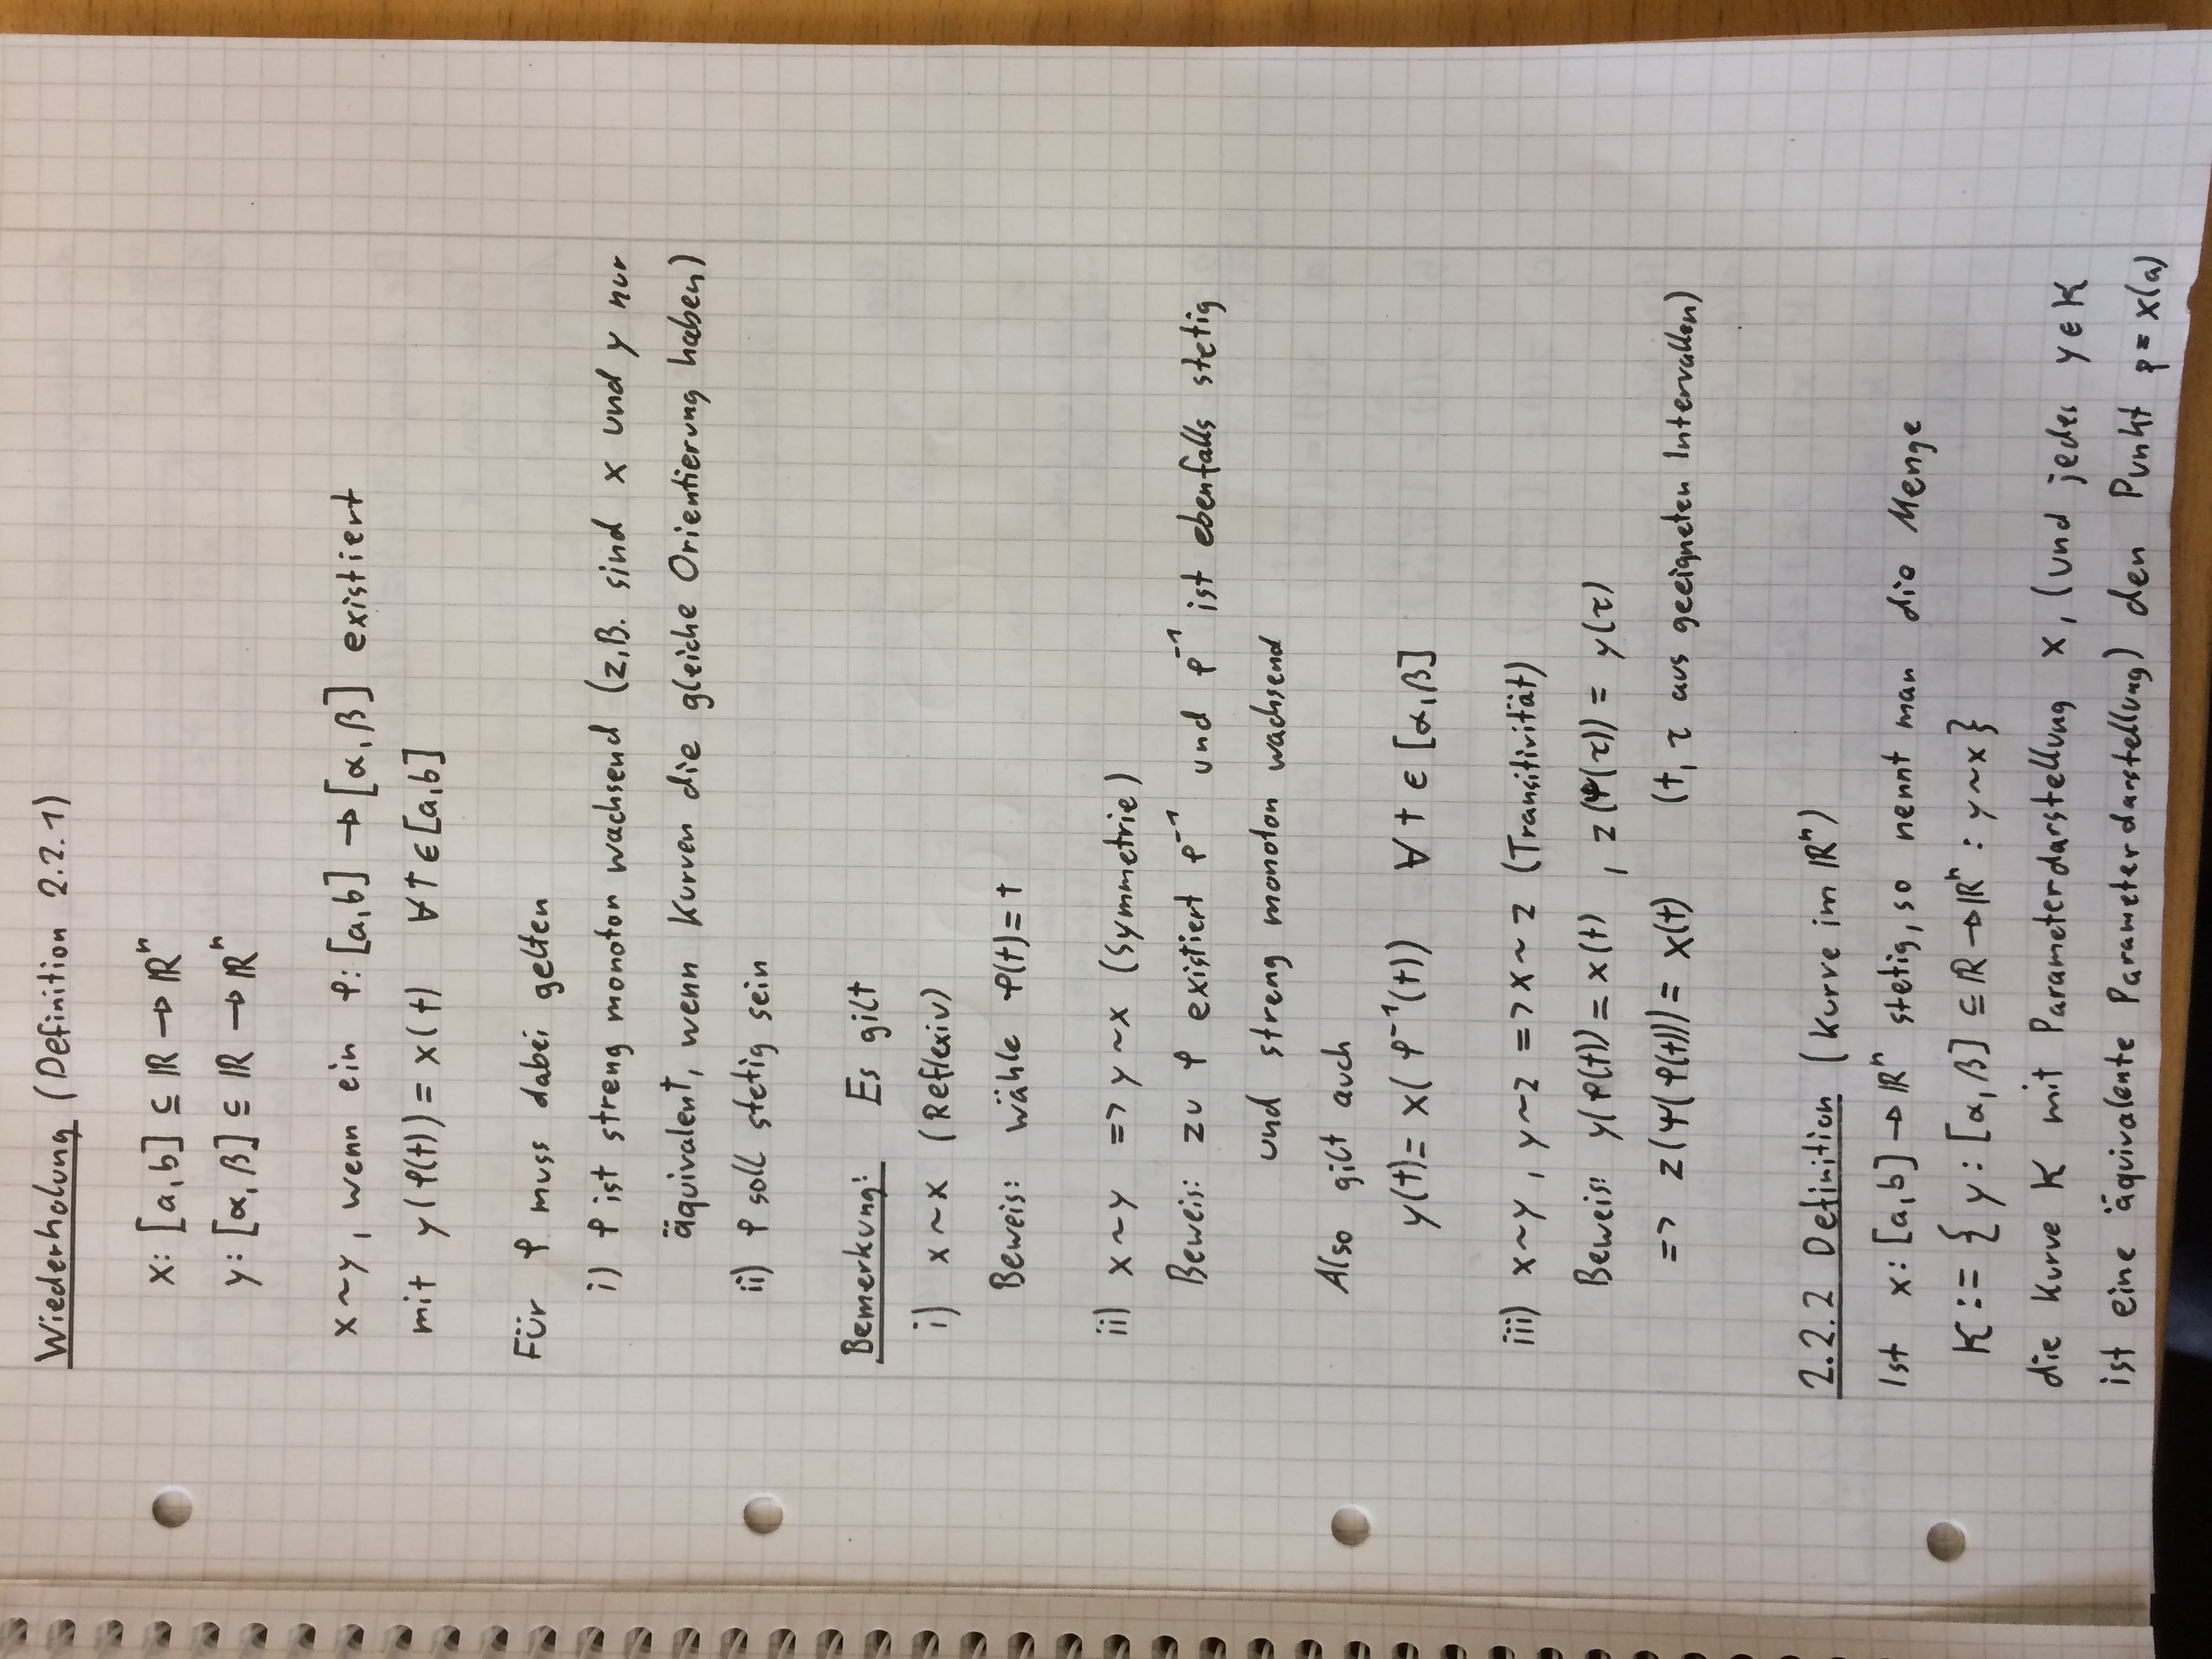 Wiederholung (Definition 2.2.1)
x: [a,b] ⊆ ℝ → ℝⁿ
y: [α, β] ⊆ ℝ → ℝⁿ
x ~ y, wenn ein φ: [a,b] → [α, β] existiert
mit y(φ(t)) = x(t) ∀ t ∈ [a,b]
Für φ muss dabei gelten
i) φ ist streng monoton wachsend (z,B. sind x und y nur
äquivalent, wenn Kurven die gleiche Orientierung haben)
ii) φ soll stetig sein
Bemerkung: Es gilt
i) x ~ x (Reflexiv)
Beweis: wähle φ(t) = t
ii) x ~ y => y ~ x (Symmetrie)
Beweis: zu φ existiert φ⁻¹ und φ⁻¹ ist ebenfalls stetig
und streng monoton wachsend
Also gilt auch
y(t) = x(φ⁻¹(t)) ∀ t ∈ [α, β]
iii) x ~ y, y ~ z => x ~ z (Transitivität)
Beweis: y(φ(t)) = x(t) , z(ψ(τ)) = y(τ)
=> z(ψ(φ(t))) = x(t) (t, τ aus geeigneten Intervallen)
2.2.2 Definition (Kurve im ℝⁿ)
Ist x: [a,b] → ℝⁿ stetig, so nennt man die Menge
K := { y: [α, β] ⊆ ℝ → ℝⁿ : y ~ x }
die Kurve K mit Parameterdarstellung x, (und jedes y ∈ K
ist eine äquivalente Parameterdarstellung) den Punkt p = x(a)